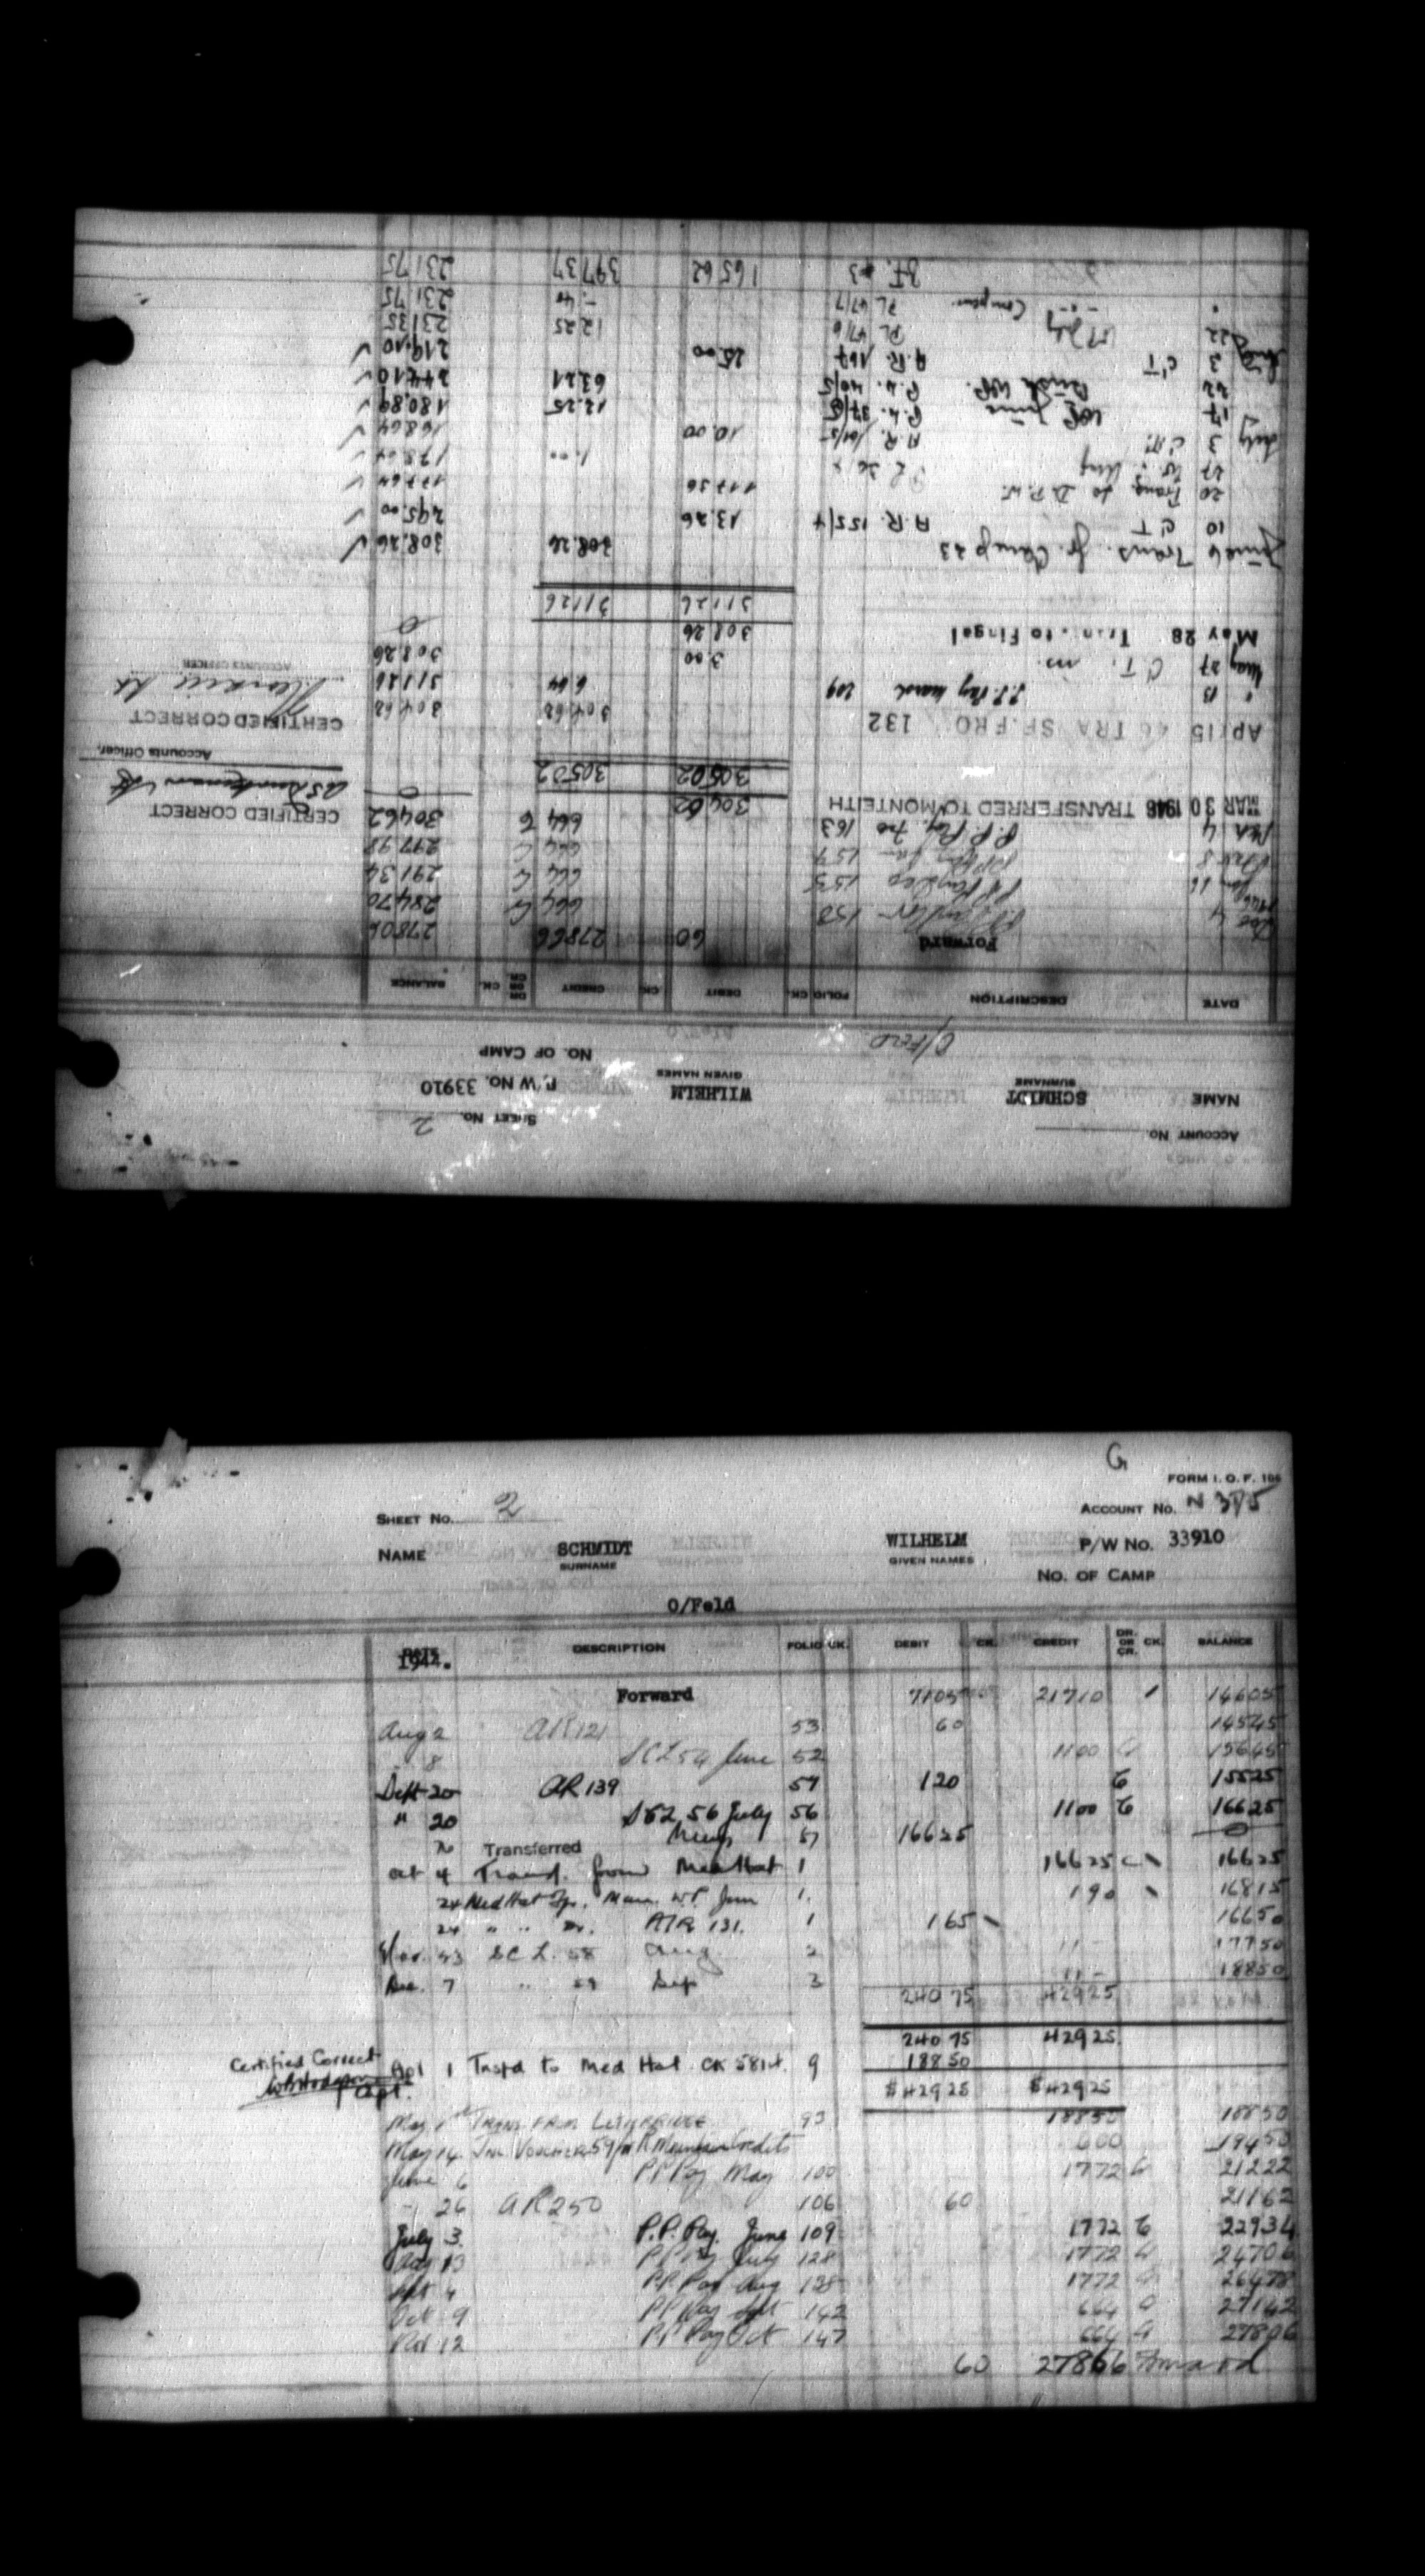 ACCOUNT No.
SHEET No. 2
NAME SCHMIDT WILHELM P/W No. 33910
SURNAME GIVEN NAMES
O/FELD NO. OF CAMP
DATE DESCRIPTION FOLIO CK. DEBIT CK. CREDIT DR. OR CR. CK. BALANCE
Forward 60 27866 27806
Dec 4 158 664 G 28470
1946 Jan 16 PP Pay Dec 155 664 G 29134
8 PP Pay Jan 157 664 G 29798
Mch 4 P.P. Pay Feb 163 664 G 30462
MAR 30 1946 TRANSFERRED TO MONTEITH 30462 0
CERTIFIED CORRECT
30502 30502
Accounts Officer.
Apr 15 46 TRA SF. FRO 132 30462 30462
CERTIFIED CORRECT
" 13 P.P. Pay March 209 664 31126
May 27 C.T. m. 3.00 30826
ACCOUNTS OFFICER
May 28 Tran. to Fingal 30826 0
31126 31126
June 6 Trans. fr. Camp 23 308.26 308.26 ✓
10 C.T A.R. 155/4 13.26 295.00 ✓
20 Trans. to D.P.W. 117 36 177 64 ✓
27 1.00 178 64 ✓
July 3 C.T. A.R. 161/5 10.00 168 64 ✓
17 WP June P.L. 37/5 12.25 180.89 ✓
22 Bush WP. P.L. 40/5 63.21 244.10 ✓
Aug 3 C.T A.R. 167 25.00 219.10 ✓
22 " July PL 47/6 12 25 231 35
" " " Compen. PL 47/7 - 40 231 75
ST. 23 165 62 397 37 231 75
G
FORM I. O. F. 106
SHEET No. 2 ACCOUNT No. N 375
NAME SCHMIDT WILHELM P/W No. 33910
SURNAME GIVEN NAMES
NO. OF CAMP
O/Feld
DATE DESCRIPTION FOLIO CK. DEBIT CK. CREDIT DR. OR CR. CK. BALANCE
1944.
Forward 7105 21710 14605
Aug 2 AR 121 53 60 14545
" 8 SCL 54 June 52 1100 G 15645
Sept 20 AR 139 54 120 G 15525
" 20 56 July 56 1100 G 16625
26 Transferred 57 16625 0
Oct 4 Transf. from Med Hat 1 16625 16625
24 Med Hat Man. W.P. June 1. 190 16815
24 " " " A/R 131. 1 165 16650
Nov. 23 SC L. 58 Aug 2 11 - 17750
Dec. 7 " 59 Sep 3 11 - 18850
240 75 429 25
240 75 429 25
Certified Correct
Capt.
Apl 1 Tnsfd to Med Hat CK 5814. 9 188 50
$ 429 25 $ 429 25
May 1st TRANS. FROM LETHBRIDGE 93 18850 18850
May 14 JNL VOUCHER 59/ Credits 600 19450
June 6 PP Pay May 100 1772 G 21222
" 26 AR 250 106 60 21162
July 3. P.P. Pay. June 109 1772 G 22934
Aug 13 PP Pay July 128 1772 G 24706
Sept 4 P.P. Pay Aug 138 1772 G 26478
Oct 9 PP Pay Sept 142 664 G 27142
Nov 12 PP Pay Oct 147 664 G 27806
60 27866 Forward